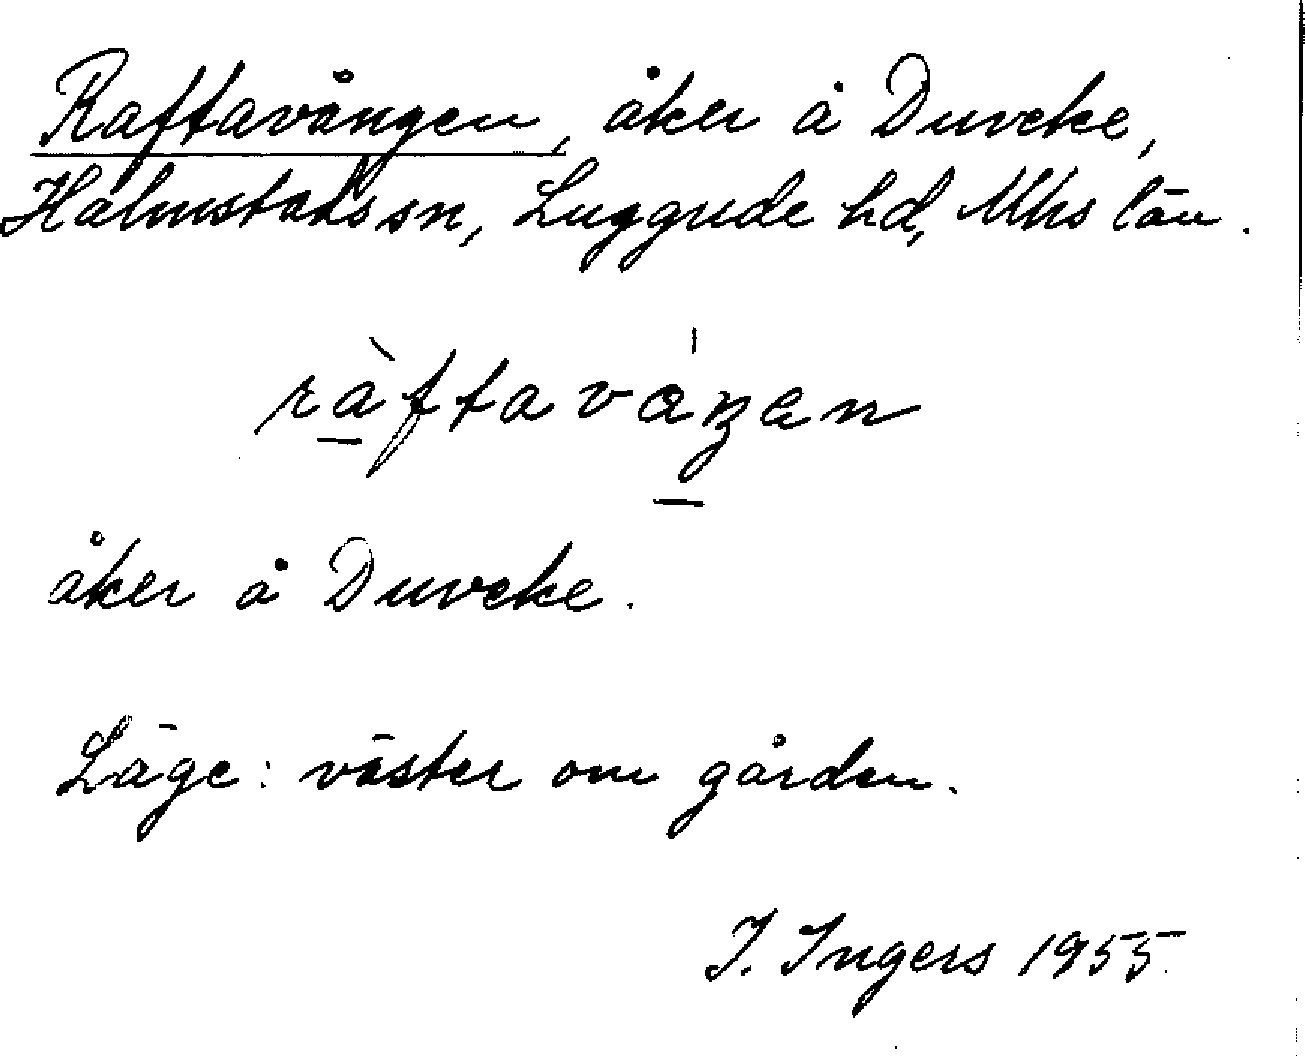 Raftavången, åker å Duveke,
Halmstads sn, Luggude hd, Mhs län.
ràftavaŋen
åker å Duveke.
Läge: väster om gården.
I. Ingers 1955.